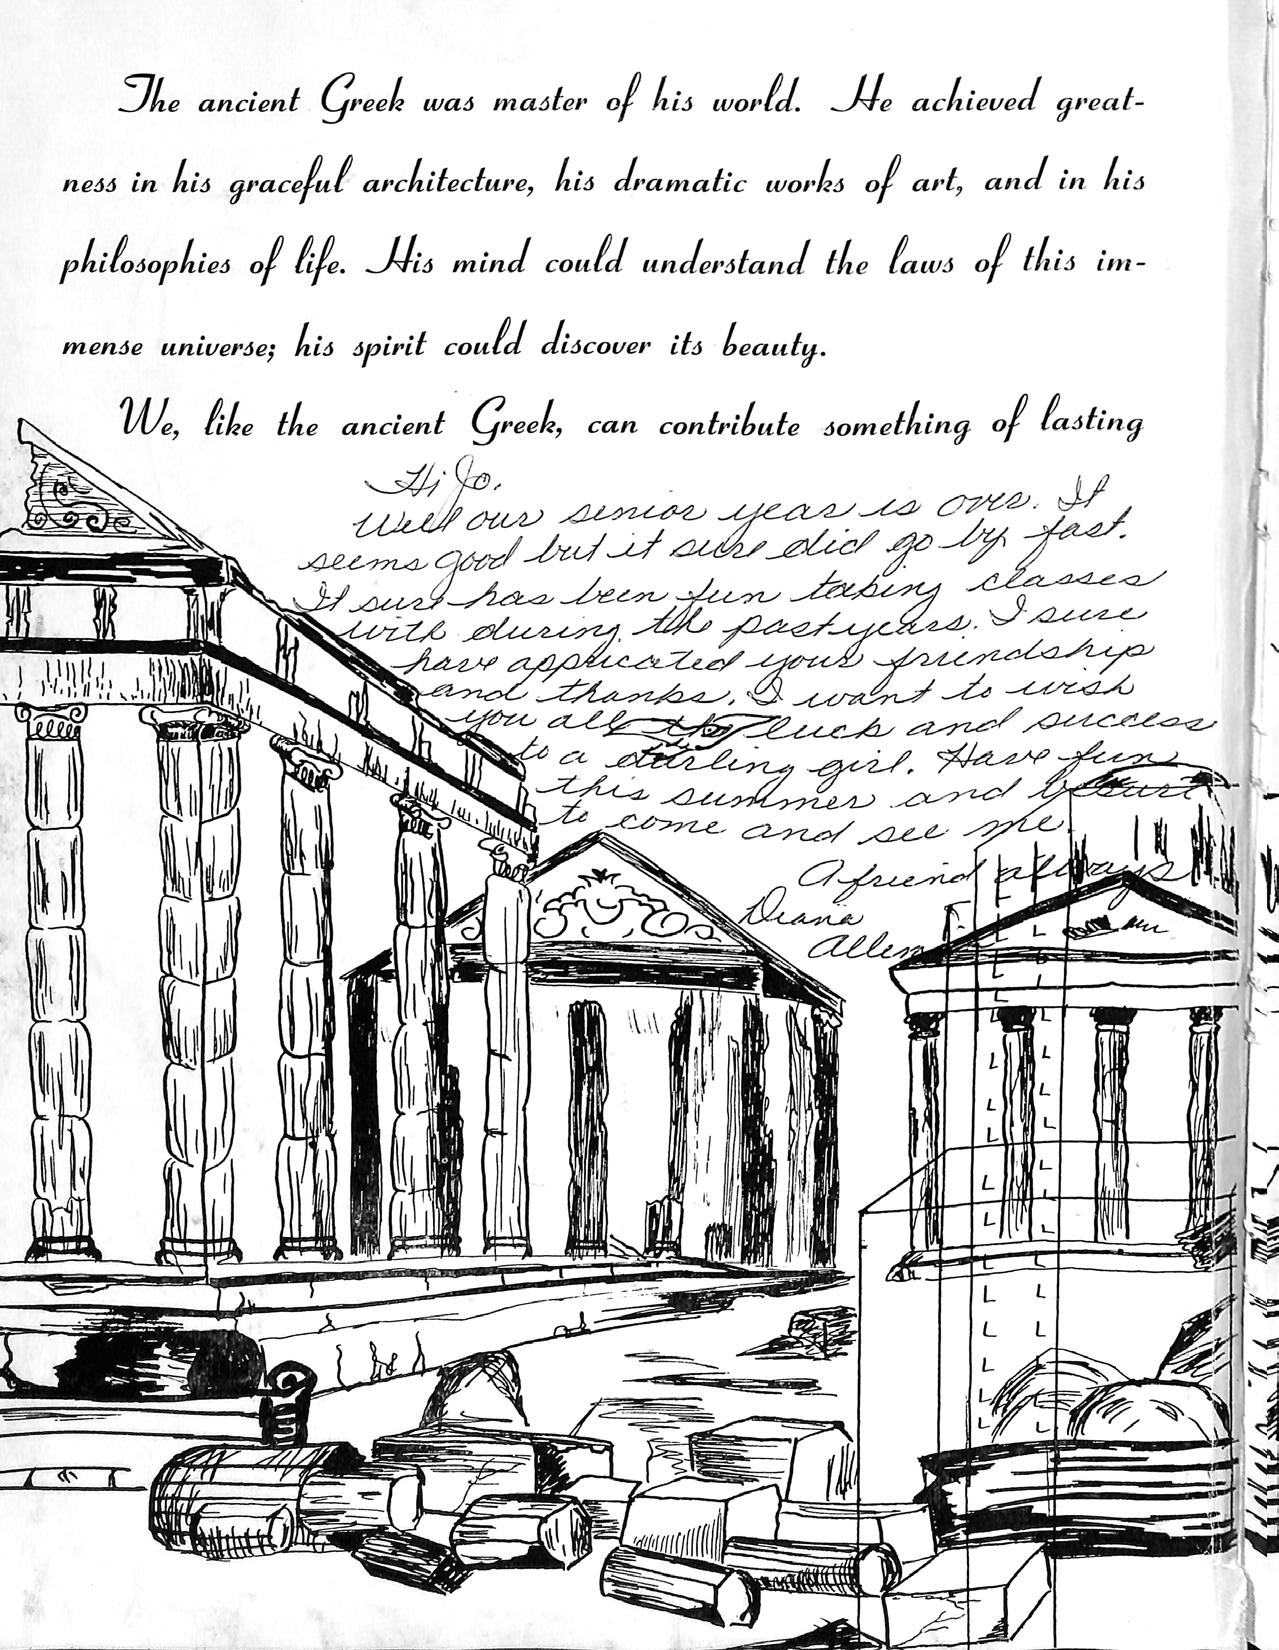 The ancient Greek was master of his world. He achieved great-
ness in his graceful architecture, his dramatic works of art, and in his
philosophies of life. His mind could understand the laws of this im-
mense universe; his spirit could discover its beauty.
We, like the ancient Greek, can contribute something of lasting
Hi Jo,
Well our senior year is over. It
seems good but it sure did go by fast.
It sure has been fun taking classes
with during the past years. I sure
have appricated your friendship
and thanks. I want to wish
you all the luck and success
to a darling girl. Have fun
this summer and be sure
to come and see me.
A friend always
Diana
Allen